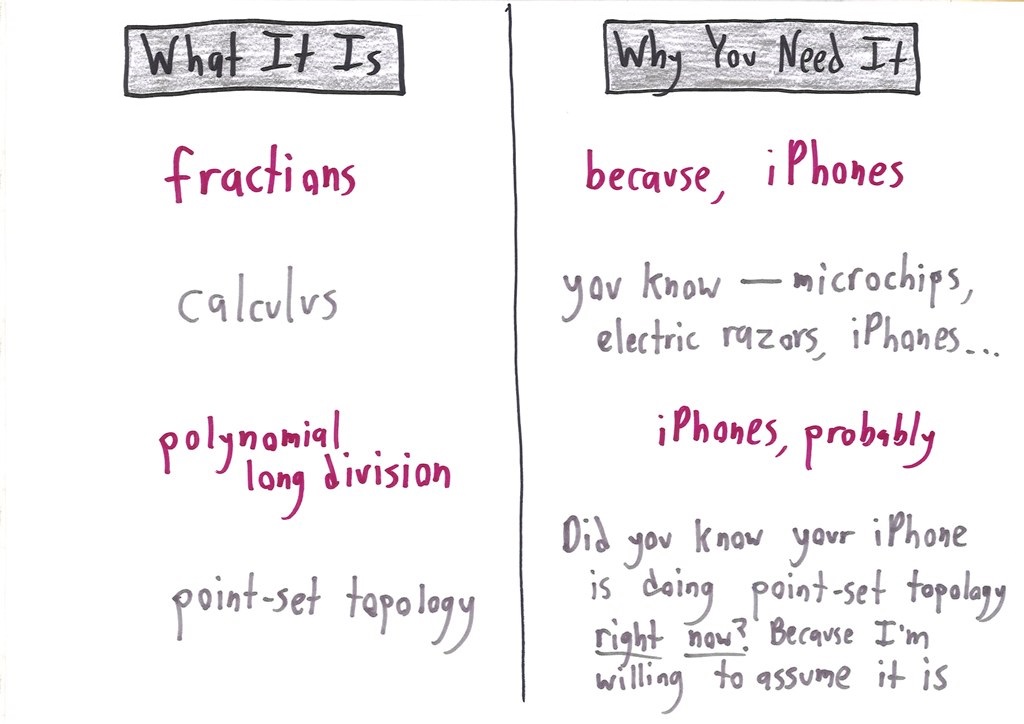 What It Is
Why You Need It
fractions
because, iPhones
calculus
you know — microchips,
electric razors, iPhones...
polynomial
long division
iPhones, probably
point-set topology
Did you know your iPhone
is doing point-set topology
right now? Because I'm
willing to assume it is